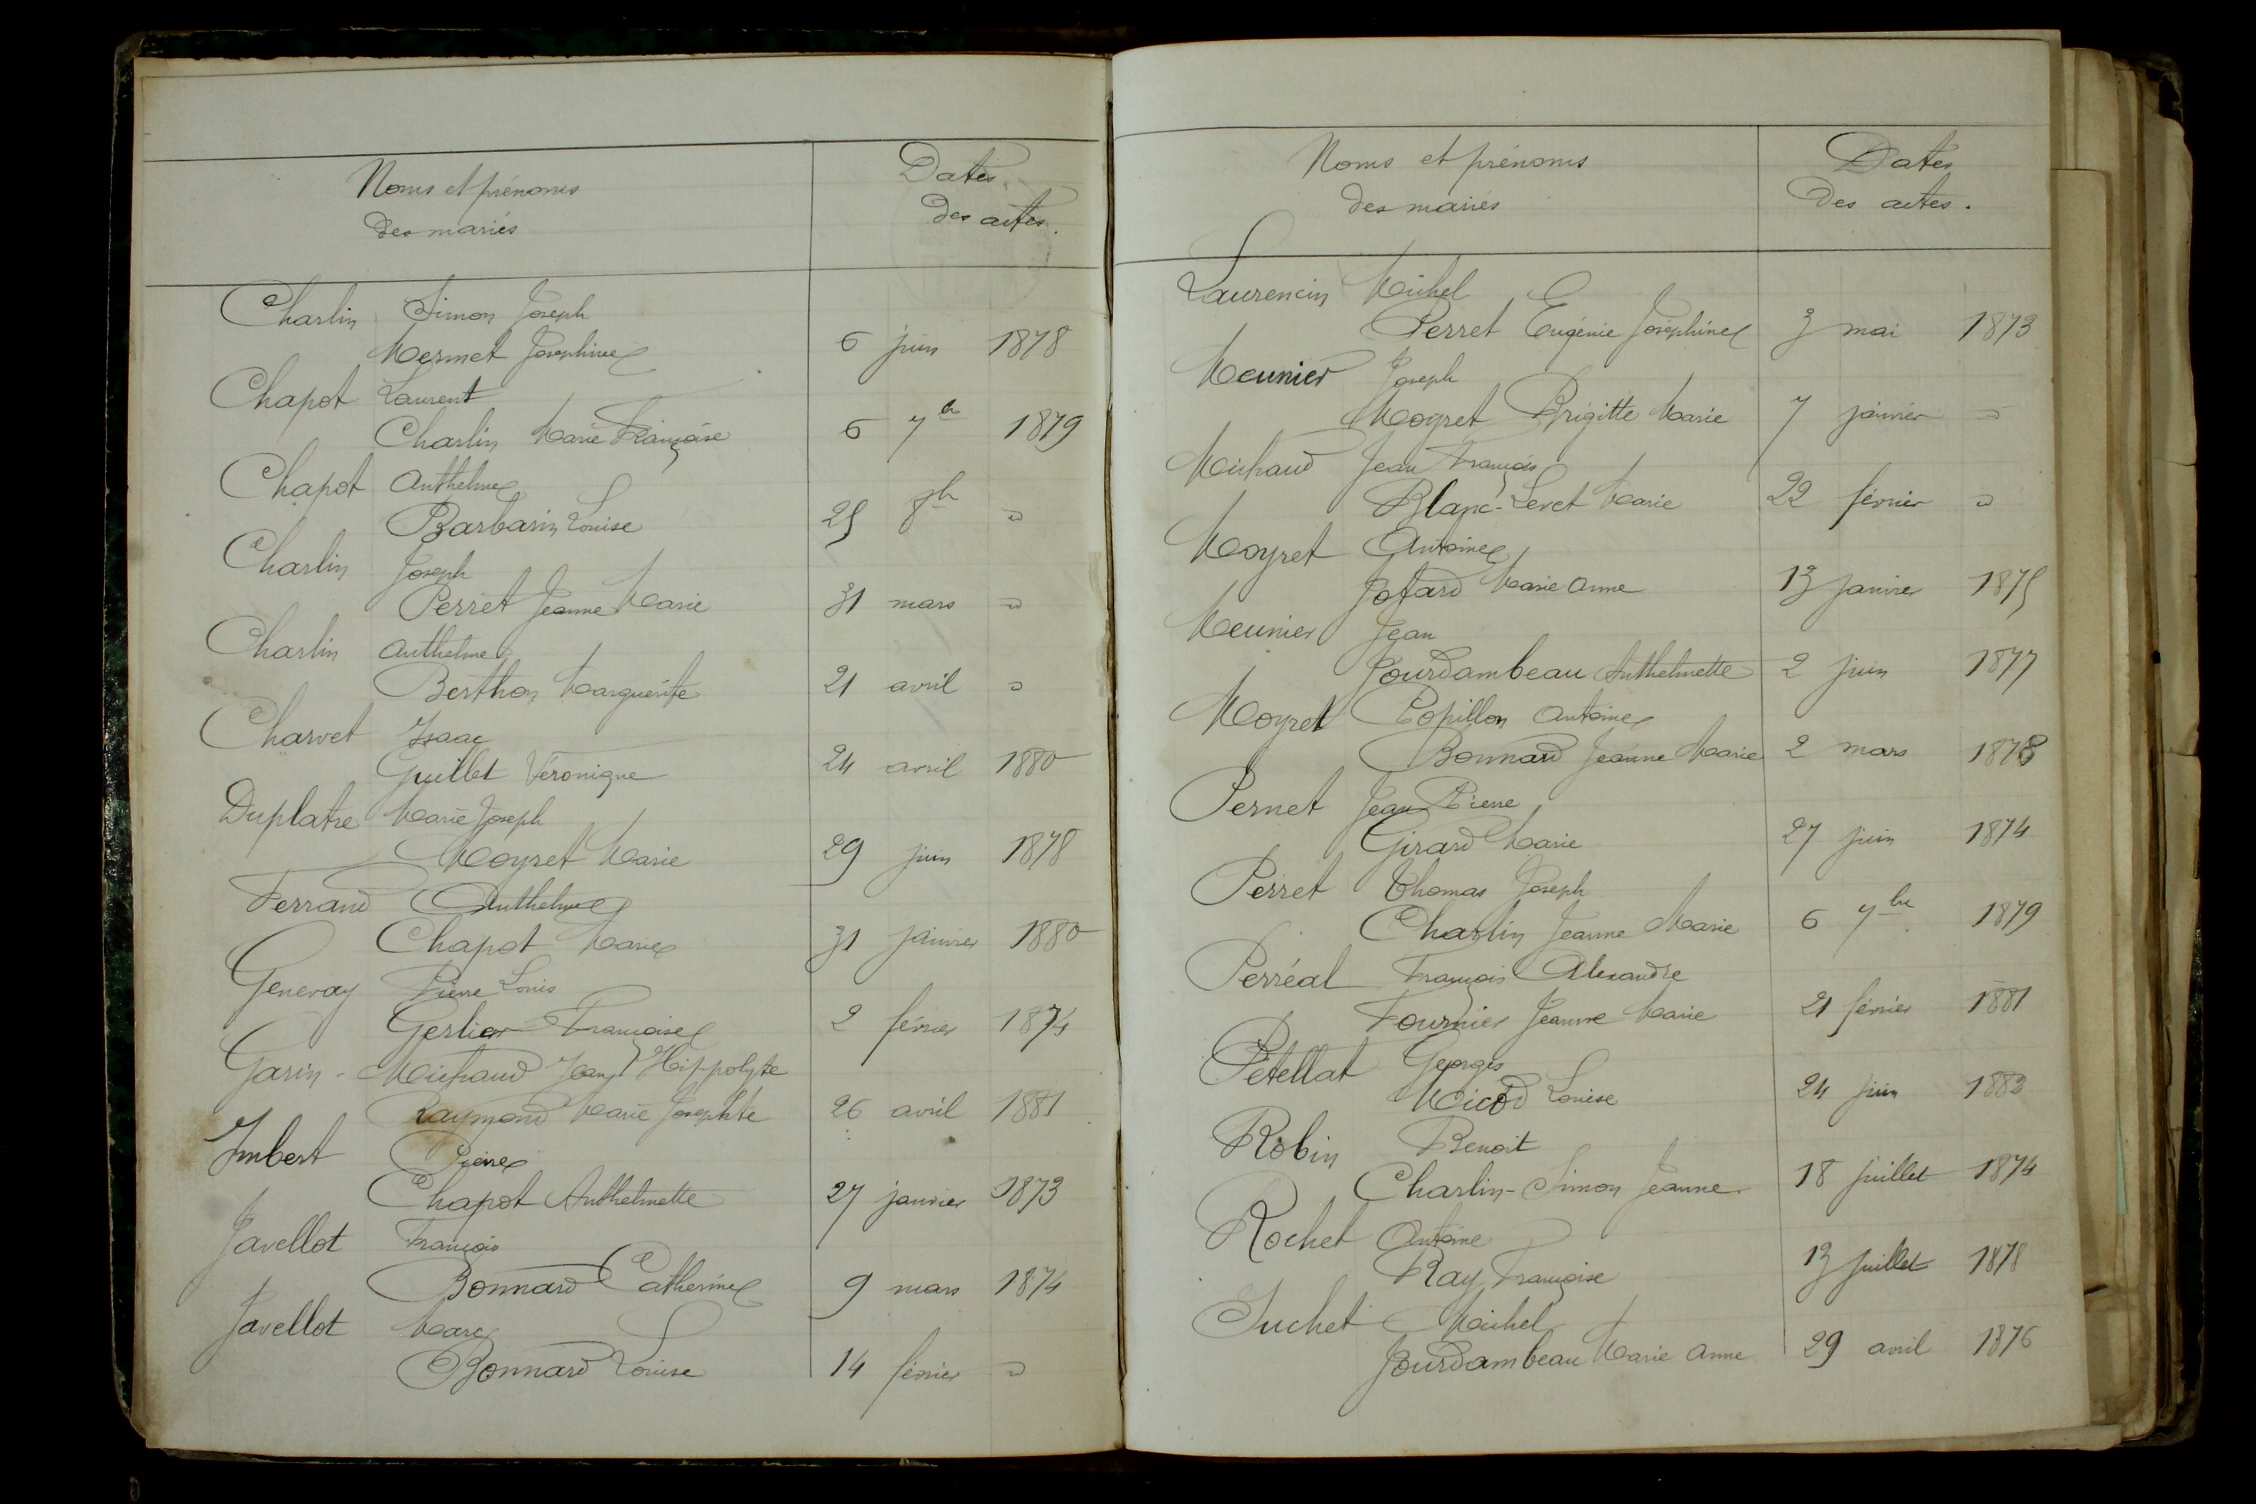 Noms et prénoms
des mariés
Dates
des actes.
Charlin Simon Joseph
Mermet Josephine 6 juin 1878
Chapot Laurent
Charlin Marie Françoise 6 7bre 1879
Chapot Anthelme
Barbarin Louise 25 8bre "
Charlin Joseph
Perret Jeanne Marie 31 mars "
Charlin Anthelme
Berthon Marguerite 21 avril "
Charvet Isaac
Guillet Véronique 24 avril 1880
Duplatre Marie Joseph
Moyret Marie 29 juin 1878
Ferrand Anthelme
Chapot Marie 31 janvier 1880
Genevay Pierre Louis
Gerlier Françoise 2 février 1874
Garin-Michaud Jean Hippolyte
Raymond Marie Josephte 26 avril 1881
Imbert Pierre
Chapot Anthelmette 27 janvier 1873
Javellot François
Bonnard Catherine 9 mars 1874
Javellot Marc
Bonnard Louise 14 février "
Noms et prénoms
des mariés
Dates
des actes.
Laurencin Michel
Perret Eugénie Joséphine 3 mai 1873
Meunier Joseph
Moyret Brigitte Marie 7 janvier "
Michaud Jean François
Blanc-Levet Marie 22 février "
Moyret Antoine
Jofard Marie Anne 13 janvier 1875
Meunier Jean
Jourdambeau Anthelmette 2 juin 1877
Moyret Popillon Antoine
Bonnard Jeanne Marie 2 mars 1878
Pernet Jean Pierre
Girard Marie 27 juin 1874
Perret Thomas Joseph
Charlin Jeanne Marie 6 7bre 1879
Perréal François Alexandre
Fournier Jeanne Marie 21 février 1881
Petellat Georges
Micod Louise 24 juin 1883
Robin Benoit
Charlin-Simon Jeanne 18 juillet 1874
Rochet Antoine
Ray Françoise 13 juillet 1878
Suchet Michel
Jourdambeau Marie Anne 29 avril 1876